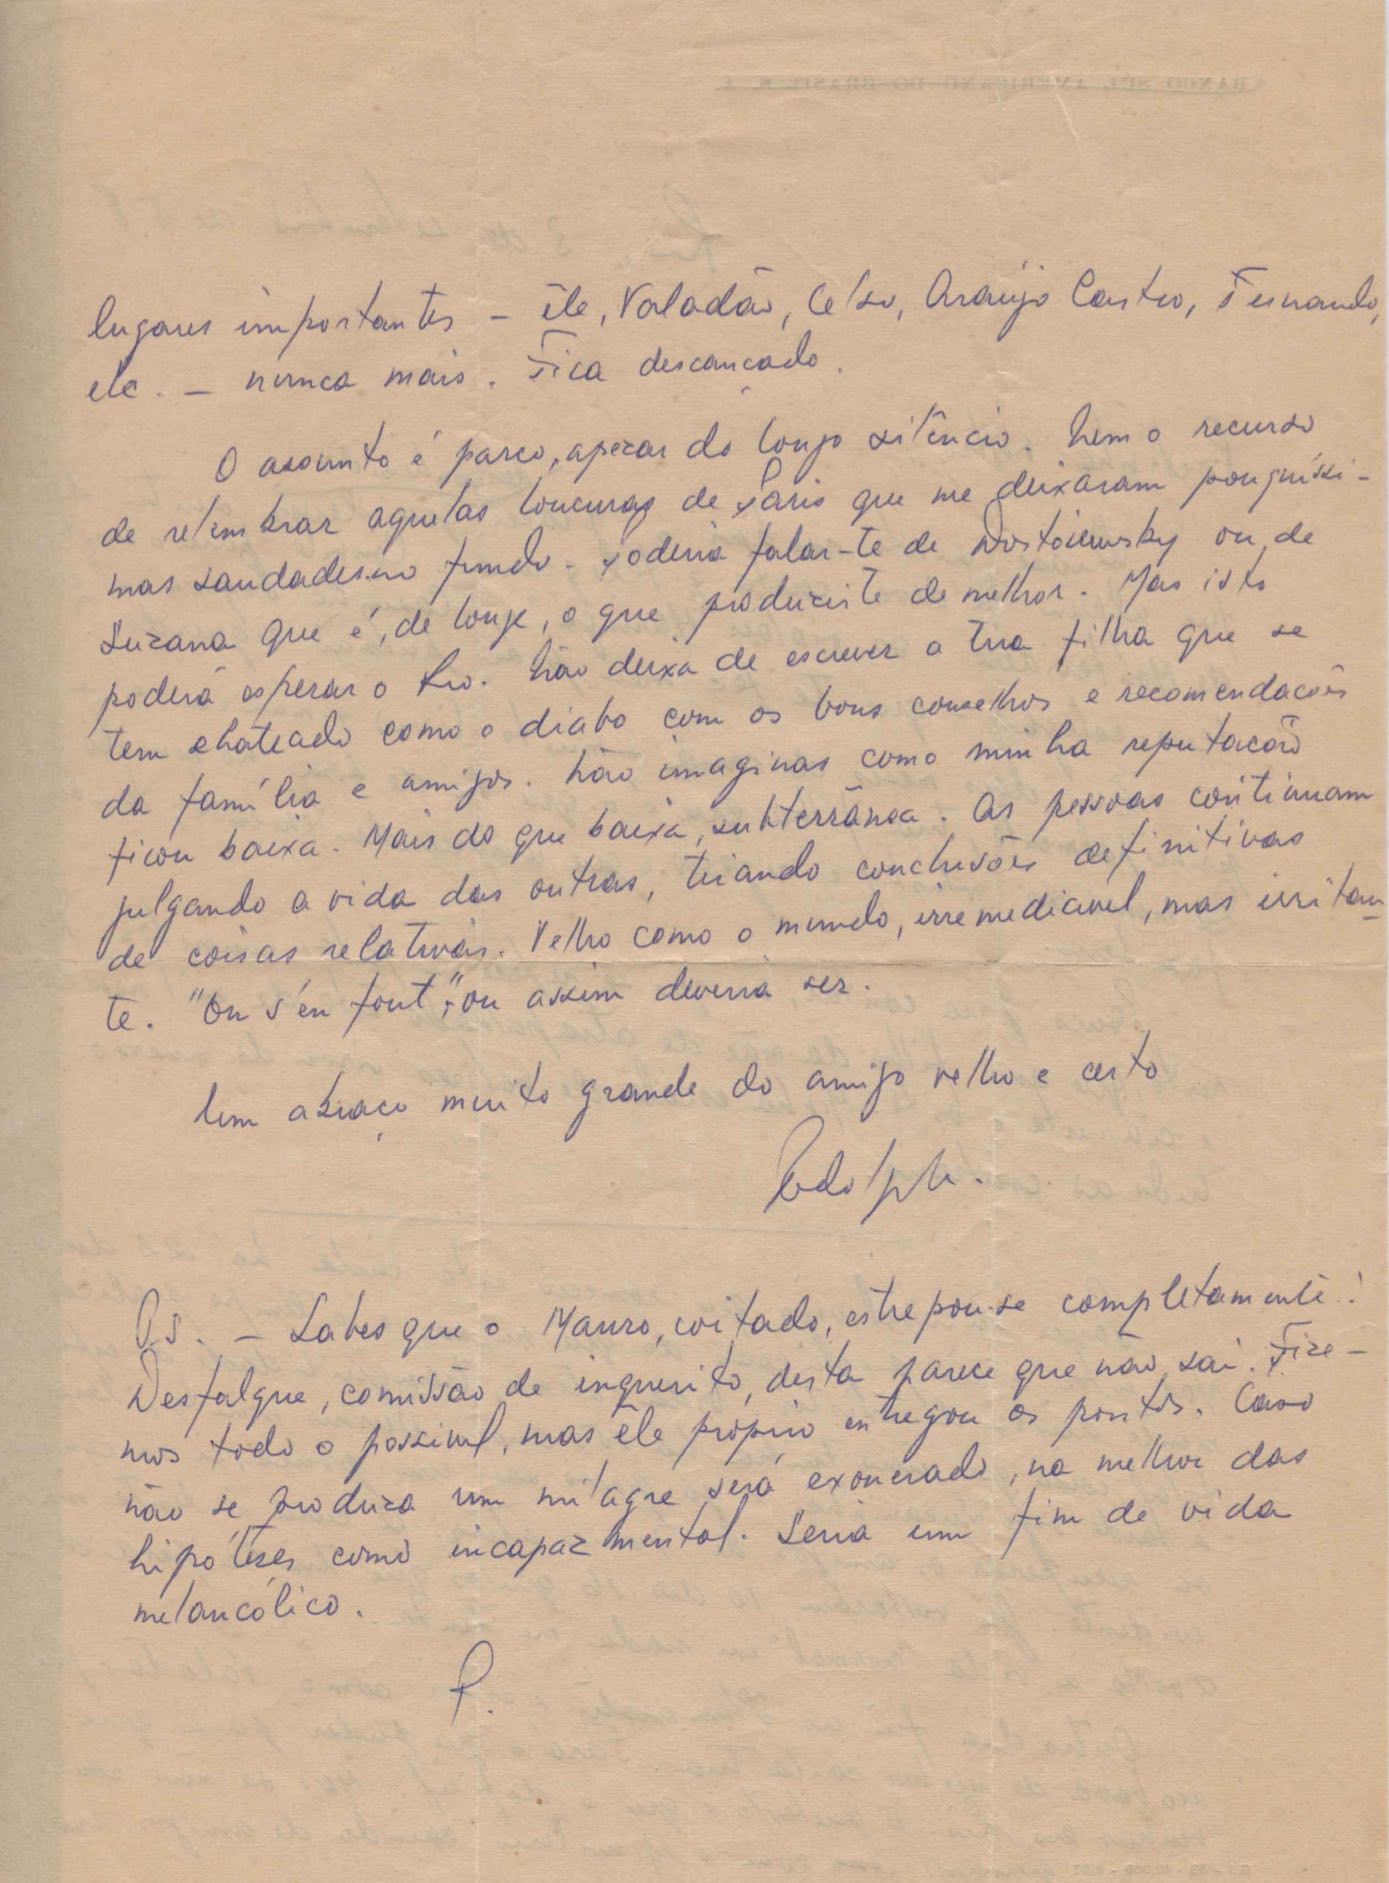 lugares importantes – êle, Valadão, Celso, Araújo Castro, Fernando,
etc. – nunca mais. Fica descançado.
O assunto é parco, apezar do longo silêncio. Nem o recurso
de relembrar aquelas loucuras de Paris que me deixaram pouquíssi-
mas saudades no fundo. Poderia falar-te de Dostoiewsky ou de
Suzana que é, de longe, o que produziste de melhor. Mas isto
poderá esperar o Rio. Não deixa de escrever a tua filha que se
tem chateado como o diabo com os bons conselhos e recomendacões
da família e amigos. Não imaginas como minha reputacão
ficou baixa. Mais do que baixa, subterrânea. As pessoas continuam
julgando a vida das outras, tirando conclusões definitivas
de coisas relativas. Velho como o mundo, irremediavel, mas irritan-
te. "On s'en fout", ou assim deveria ser.
Um abraço muito grande do amigo velho e certo
P.S. – Sabes que o Mauro, coitado, estrepou-se completamente!
Desfalque, comissão de inquerito, desta parece que não sai. Fize-
mos todo o possivel, mas êle próprio entregou os pontos. Caso
não se produza um milagre será exonerado, na melhor das
hipóteses como incapaz mental. Seria um fim de vida
melancólico.
BANCO SUL AMERICANO DO BRASIL S. A.